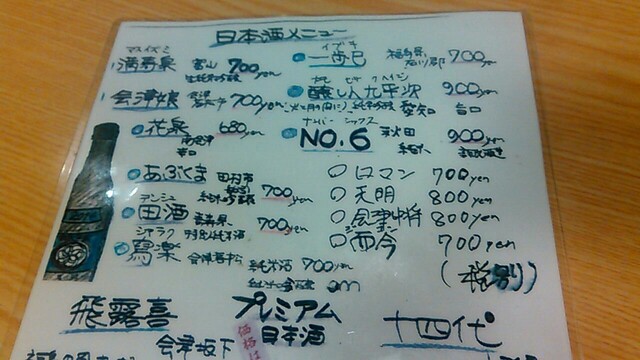 日本酒メニュー
マスイズミ
満寿泉 富山 700yen
純米吟醸
会津娘 会津 700yen
花泉 680yen
南会津
辛口
あぶくま 田村市
純米吟醸 700yen
デンシュ
田酒 青森県 700yen
シャラク 特別純米酒
寫楽 会津若松 純米酒 700yen
イブキ
一歩己 福島県 石川郡 700yen
醸し人九平次 900yen
純米吟醸 愛知 旨口
ナンバー シックス
NO.6 秋田 900yen
純米
ロマン 700yen
天明 800yen
会津中将 800yen
而今 700yen
(税別)
飛露喜
会津坂下
プレミアム
日本酒
価格は
十四代